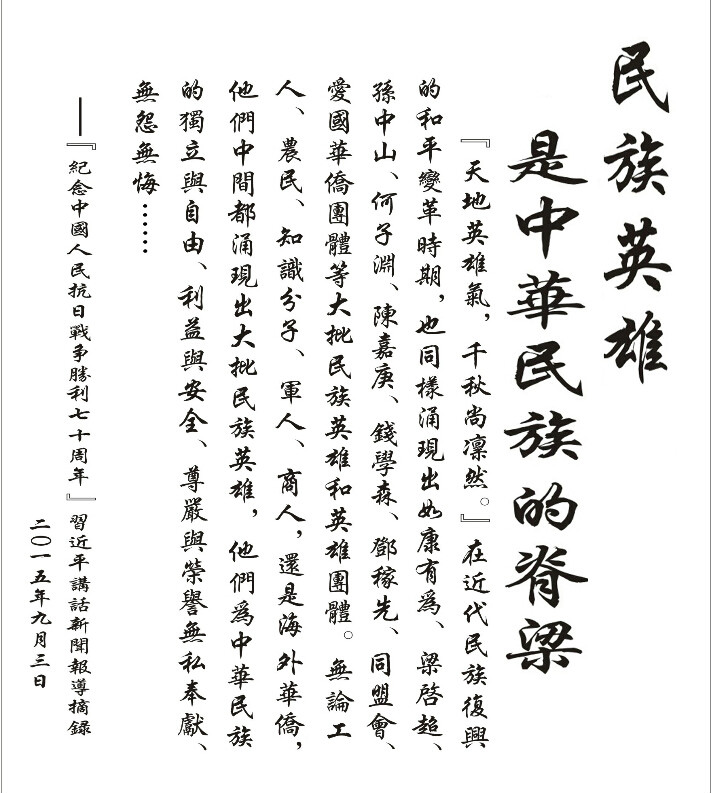 民族英雄
是中華民族的脊梁
『天地英雄氣，千秋尚凛然。』在近代民族復興
的和平變革時期，也同樣涌現出如康有為、梁啓超、
孫中山、何子淵、陳嘉庚、錢學森、鄧稼先、同盟會、
愛國華僑團體等大批民族英雄和英雄團體。無論工
人、農民、知識分子、軍人、商人，還是海外華僑，
他們中間都涌現出大批民族英雄，他們為中華民族
的獨立與自由、利益與安全、尊嚴與榮譽無私奉獻、
無怨無悔……
——『紀念中國人民抗日戰争勝利七十周年』習近平講話新聞報導摘録
二〇一五年九月三日